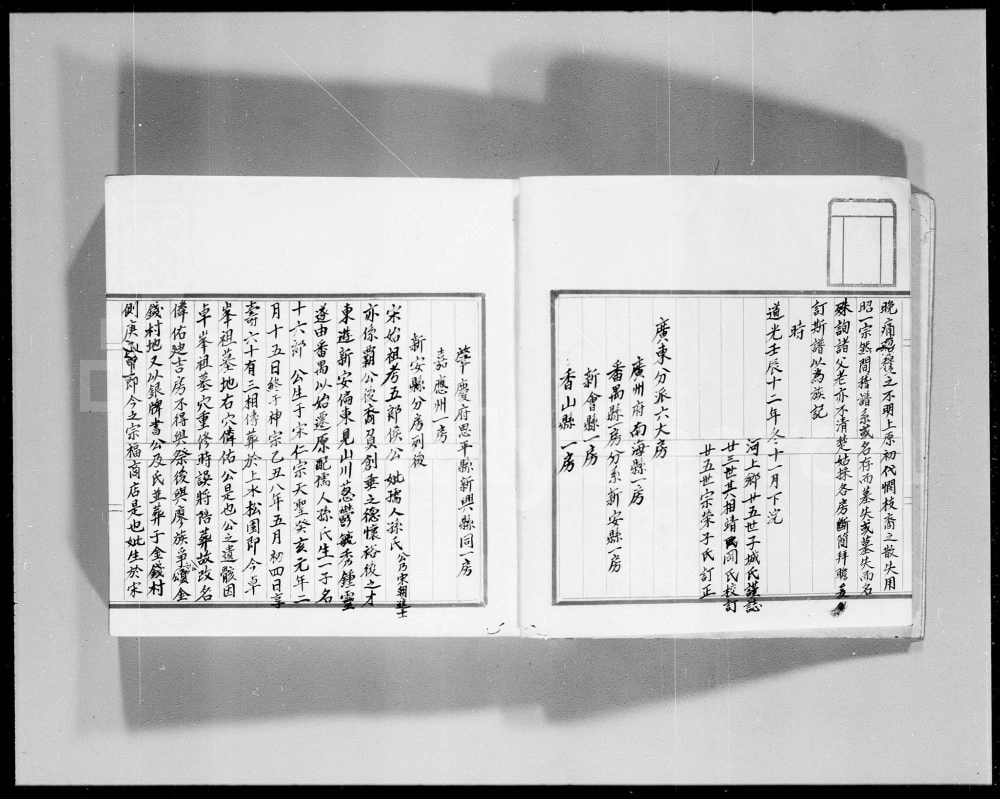 晚痛昭穆之不明上原初代憫枝裔之散失用
昭一宗然間稽譜系或名存而墓失或墓失而名
殊詢諸父老亦不清楚姑採各房斷簡拜瞻
訂斯譜以為族記
時
道光壬辰十二年冬十一月下浣
河上鄉廿五世子城氏謹誌
廿三世其相靖岡氏校訂
廿五世宗榮子氏訂正
廣東分派六大房
廣州府南海縣一房
番禺縣一房分系新安縣一房
新會縣一房
香山縣一房
肇慶府恩平縣新興縣同一房
嘉應州一房
新安縣分房列後
宋始祖考五郎侯公 妣孺人孫氏 公乃宋朝進士
亦係霸公後裔負創垂之德懷裕後之才
東遊新安偏東見山川蔥鬱毓秀鍾靈
遂由番禺以始遷原配孺人孫氏生一子名
十六郎 公生于宋仁宗天聖癸亥元年二
月十五日終于神宗乙丑八年五月初四日享
壽六十有三相傳葬於上水松園即今卓
峯祖墓地右穴偉佑公是也公之遺骸因
卓峯祖墓穴重修時誤將陪葬故改名
偉佑廸吉房不得與祭後與廖族爭金
錢村地又以銀牌書公及氏並葬于金錢村
側庚即今之宗福商店是也妣生於宋